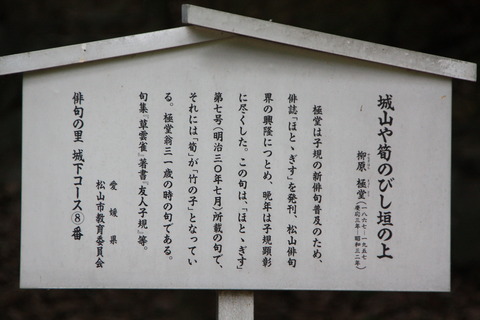 城山や筍のびし垣の上
柳原 極堂(一八六七―一九五七 慶応三年―昭和三二年)
極堂は子規の新俳句普及のため、
俳誌「ほとゝぎす」を発刊、松山俳句
界の興隆につとめ、晩年は子規顕彰
に尽くした。この句は、「ほとゝぎす」
第七号(明治三〇年七月)所載の句で、
それには「筍」が「竹の子」となってい
る。極堂翁三一歳の時の句である。
句集『草雲雀』著書『友人子規』等。
愛媛県
松山市教育委員会
俳句の里 城下コース⑧番